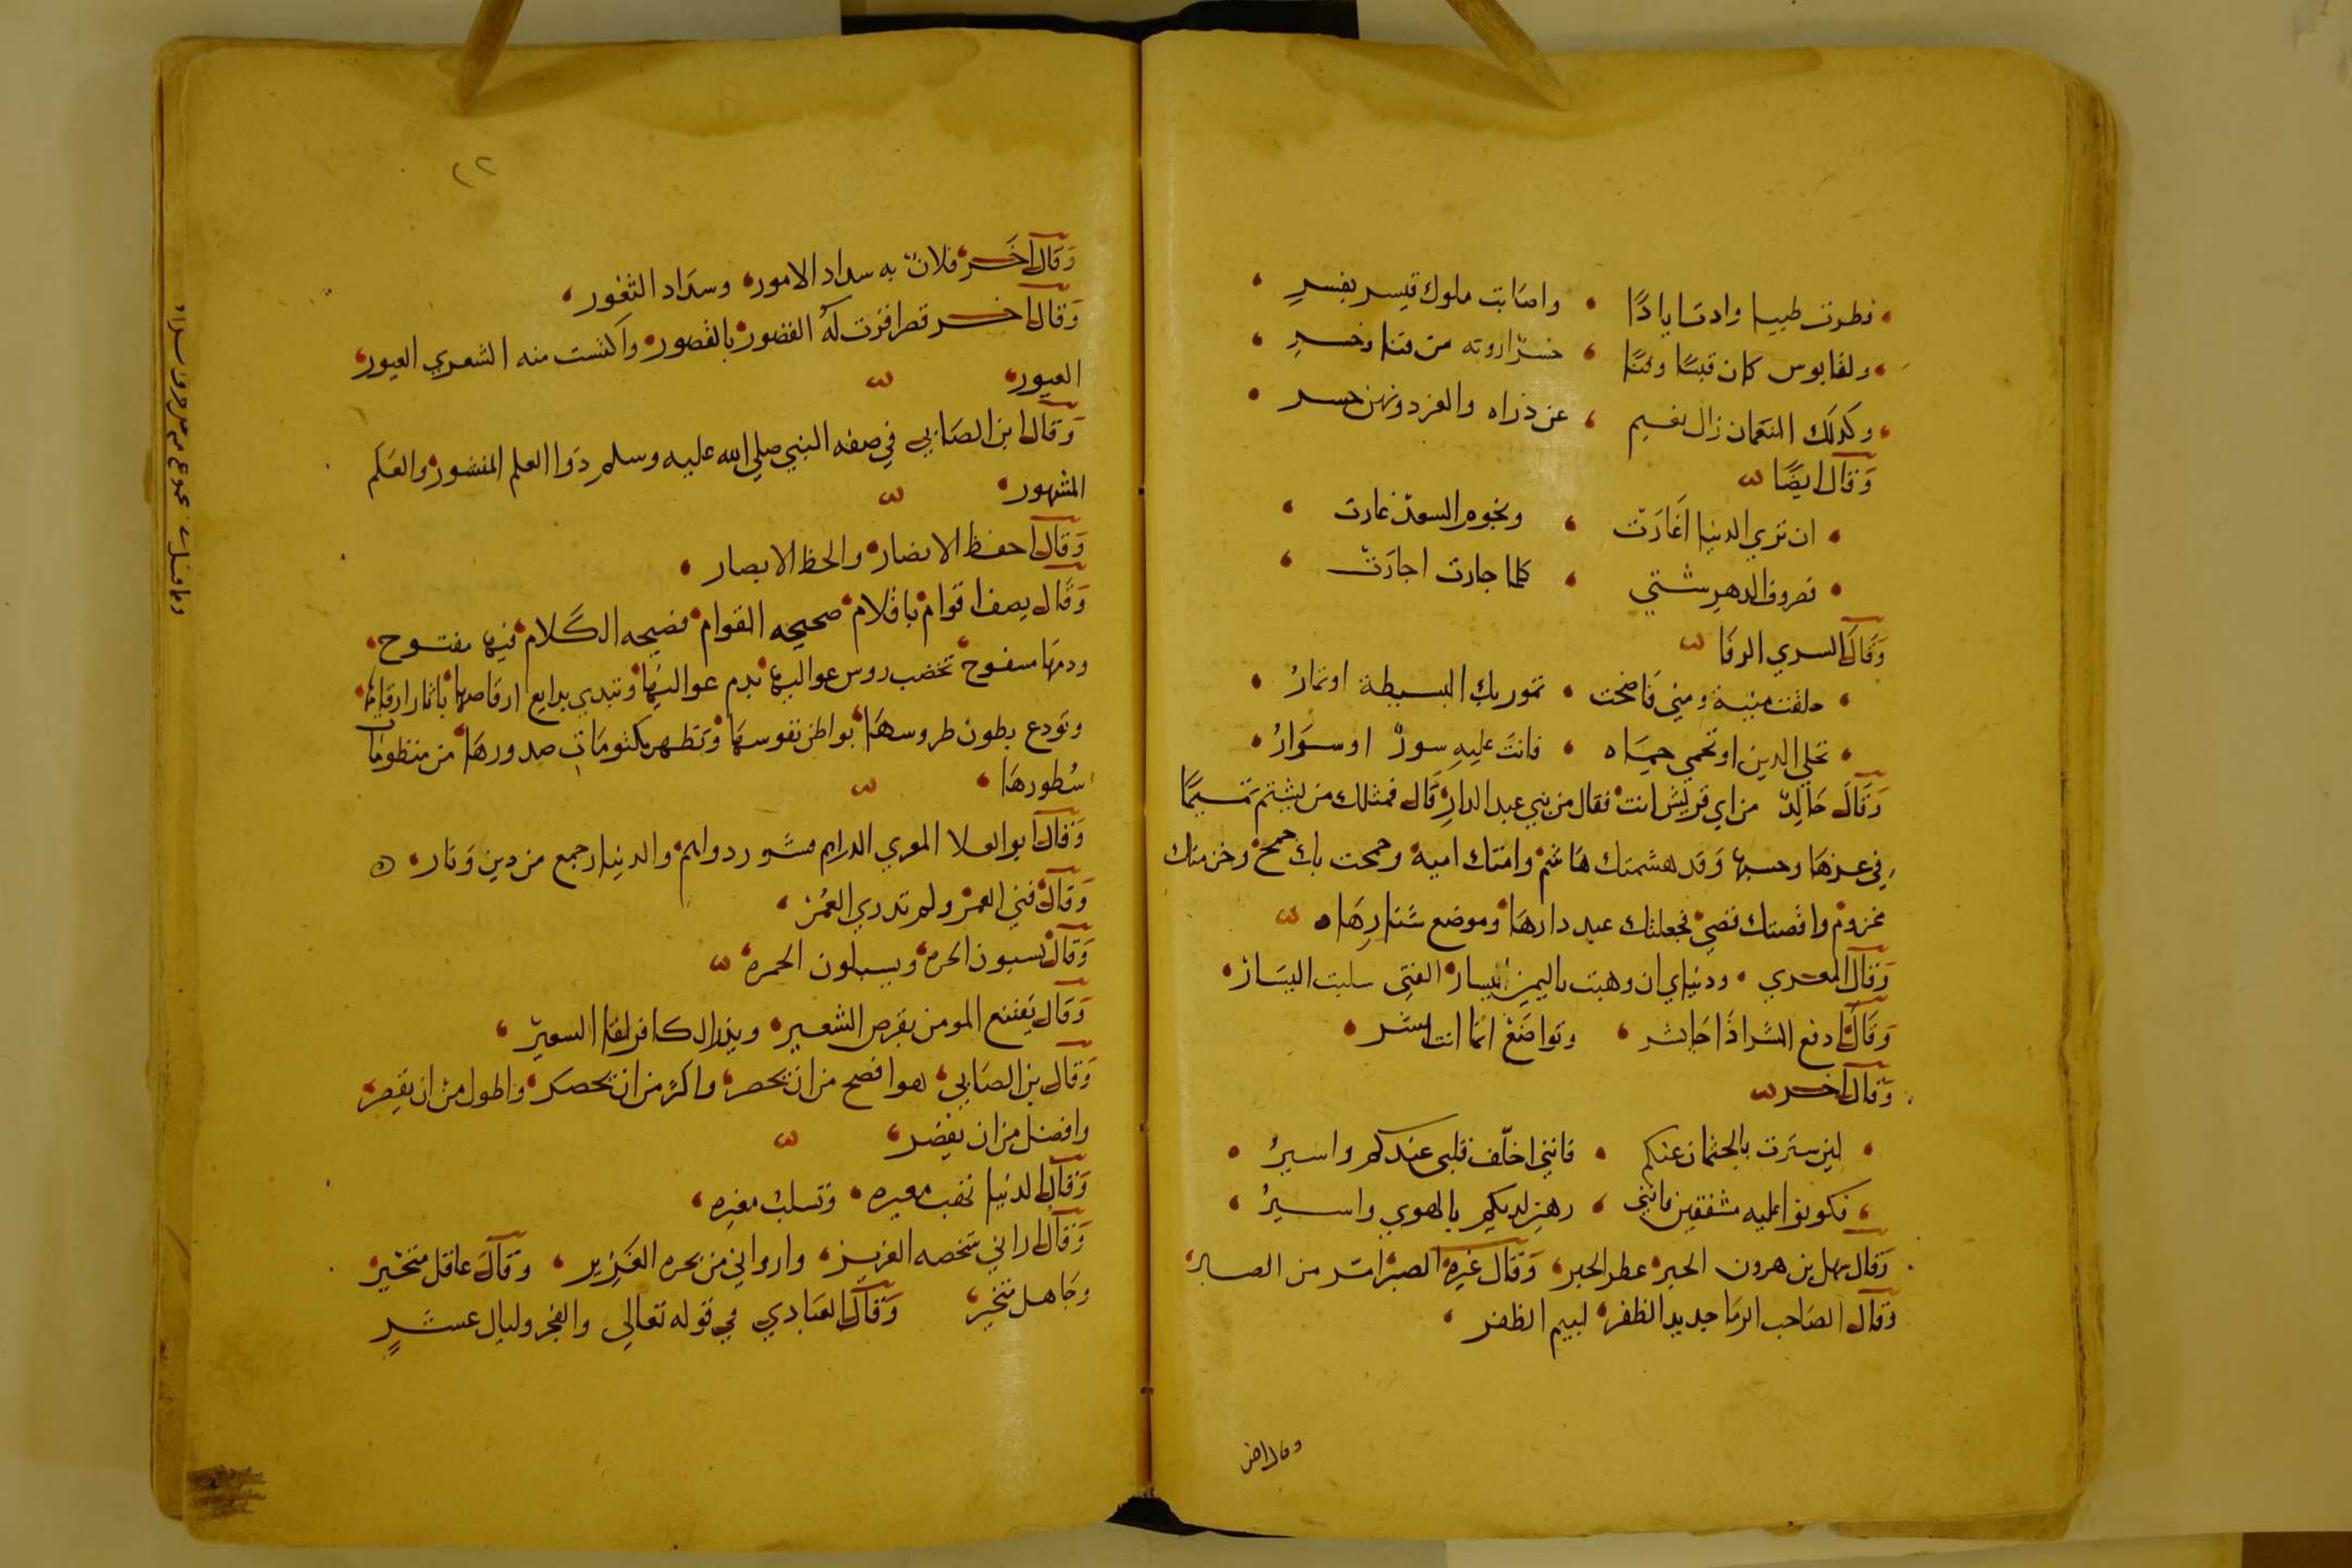 فطرت طيبا وادت اياذا • واصابت ملوك قيسر بقسر
ولقابوس كان قبسا وكنا • خسر اروته من قنا وخسر
وكذلك النعمان زال نعيم • عن ذراه والفرد ونهن حسر
وقال ايضا
ان تري الدنيا اغارت • ونجوم السعد غارت
فصروف الدهر شتي • كلما جارت اجارت
وقال السري الرفا
حلفت منية ومني فاضحت • تمور بك البسيطة او تمار
تحلي الدين او تحمي حمياه • فانت عليه سور او سوار
وقال خالد من اي قريش انت فقال من بني عبد الدار قال فمثلك من يشتم تميما
في عزها وحسبها وقد هشمتك هاشم وامتك امية وجمحت بك جمح وخزمتك
مخزوم واقصتك قصي فجعلتك عبد دارها وموضع شنارها
وقال المعري • ودنياي ان وهبت باليمين يسار الفتي سلبت اليسار
وقال ادفع الشر اذا جا بشر • وتواضع انما انت بشر
وقال اخر
لين سرت بالجثمان عنكم • فانني اخلف قلبي عندكم واسير
فكونوا عليه مشفقين فانني • رهين لديكم بالهوي واسير
وقال سهل بن هرون الحبر عطر الحبر وقال غيره الصبر امر من الصبر
وقال الصاحب الرما جديد الظفر لييم الظفر
وقال اخر
٢٢
وقال اخر فلان به سداد الامور وسداد الثغور
وقال اخر قصر اقرت له القصور بالقصور واكتست منه الشعري العبور
العبور
وقال ابن الصابي في صفه النبي صلي الله عليه وسلم ذوا العلم المنشور والعلم
المشهور
وقال احفظ الانصار والحظ الابصار
وقال يصف اقوام باقلام صحيحه القوام فصيحه الكلام فيها مفتوح
ودمها مسفوح تخضب روس عواليها بدم عواليها وتبدي بدايع ارقاصها باثار ارقامها
وتودع بطون طروسها بواطن نفوسها وتظهر مكتومات صدورها من منظومات
سطورها
وقال ابو العلا المعري الدراهم مشور دراهم والدنيا رجمع من دين ونار
وقال فني العمر ولم تدري العمر
وقال يسبون الحره ويسبلون الخمره
وقال يقتنع المومن بقرص الشعير وينذر الكافر لقا السعير
وقال بن الصابي هو افصح من ان يحصر واكثر من ان يحصر واطول من ان يقصر
وافضل من ان يقصر
وقال الدنيا تهب معيره وتسلب مغيره
وقال اراني شخصه العزيز واروانى من بحره الغزير وقال عاقل متحير
وجاهل متخير وقال العبادي في قوله تعالي والفجر وليال عشر